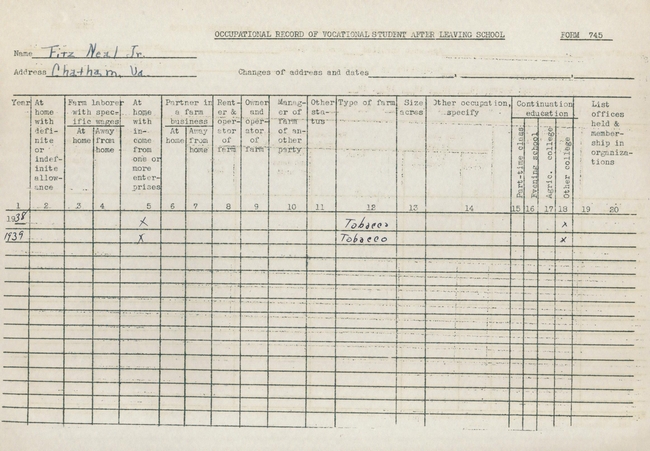 OCCUPATIONAL RECORD OF VOCATIONAL STUDENT AFTER LEAVING SCHOOL FORM 745
Name Fitz Neal Jr.
Address Chatham, Va Changes of address and dates
Year
At home with defi- nite or indef- inite allow- ance
Farm laborer with spec- ific wages
At home
Away from home
At home with in- come from one or more enter- prises
Partner in a farm business
At home
Away from home
Rent- er & oper- ator of farm
Owner and oper- ator of farm
Manag- er of farm of an- other party
Other sta- tus
Type of farm
Size acres
Other occupation, specify
Continuation education
Part-time class
Evening school
Agric. college
Other college
List offices held & member- ship in organiza- tions
1 2 3 4 5 6 7 8 9 10 11 12 13 14 15 16 17 18 19 20
1938 x Tobacco x
1939 x Tobacco x